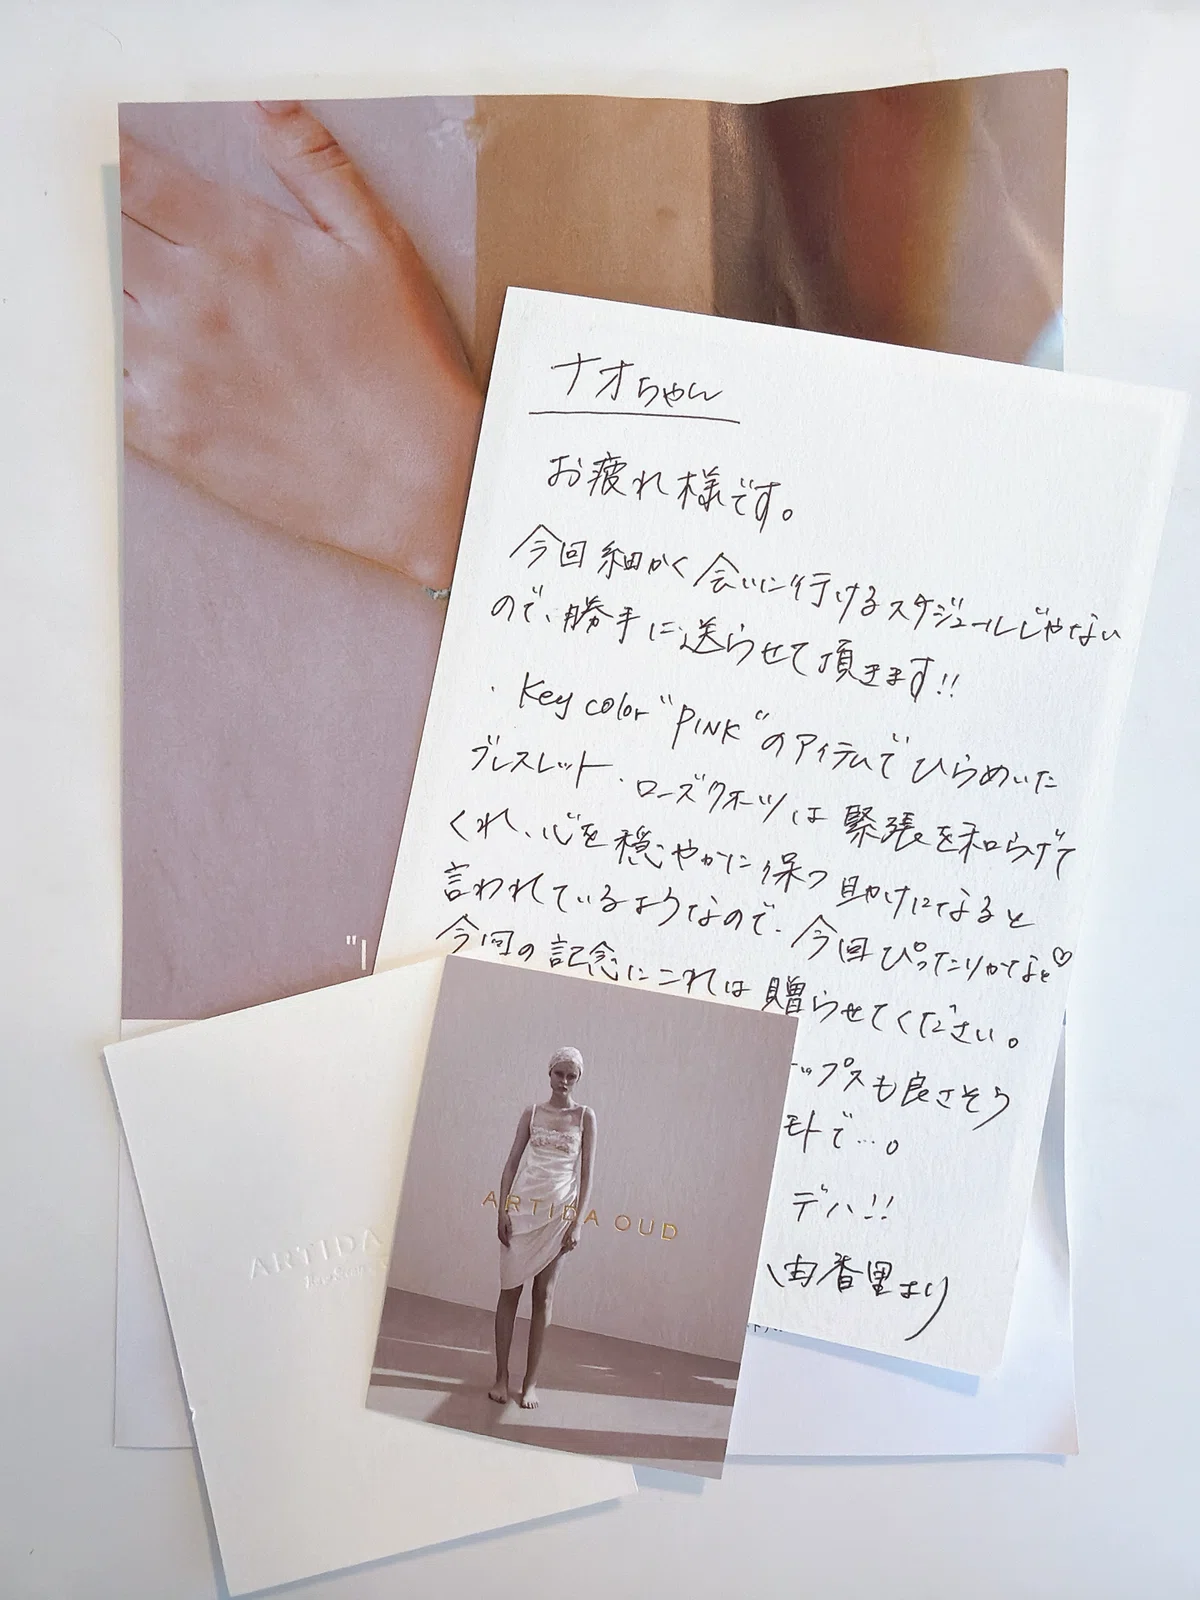 ナオちゃん
お疲れ様です。
今回細かく会いに行けるスケジュールじゃない
ので、勝手に送らせて頂きます!!
・Key color "PINK" のアイテムでひらめいた
ブレスレット・ローズクオーツは緊張を和らげて
くれ、心を穏やかに保つ助けになると
言われているようなので、今回ぴったりかなと♡
今回の記念にこれは贈らせてください。
ップスも良さそう
モトで…。
デハ!!
由香里より
"I
ARTIDA
ARTIDA OUD